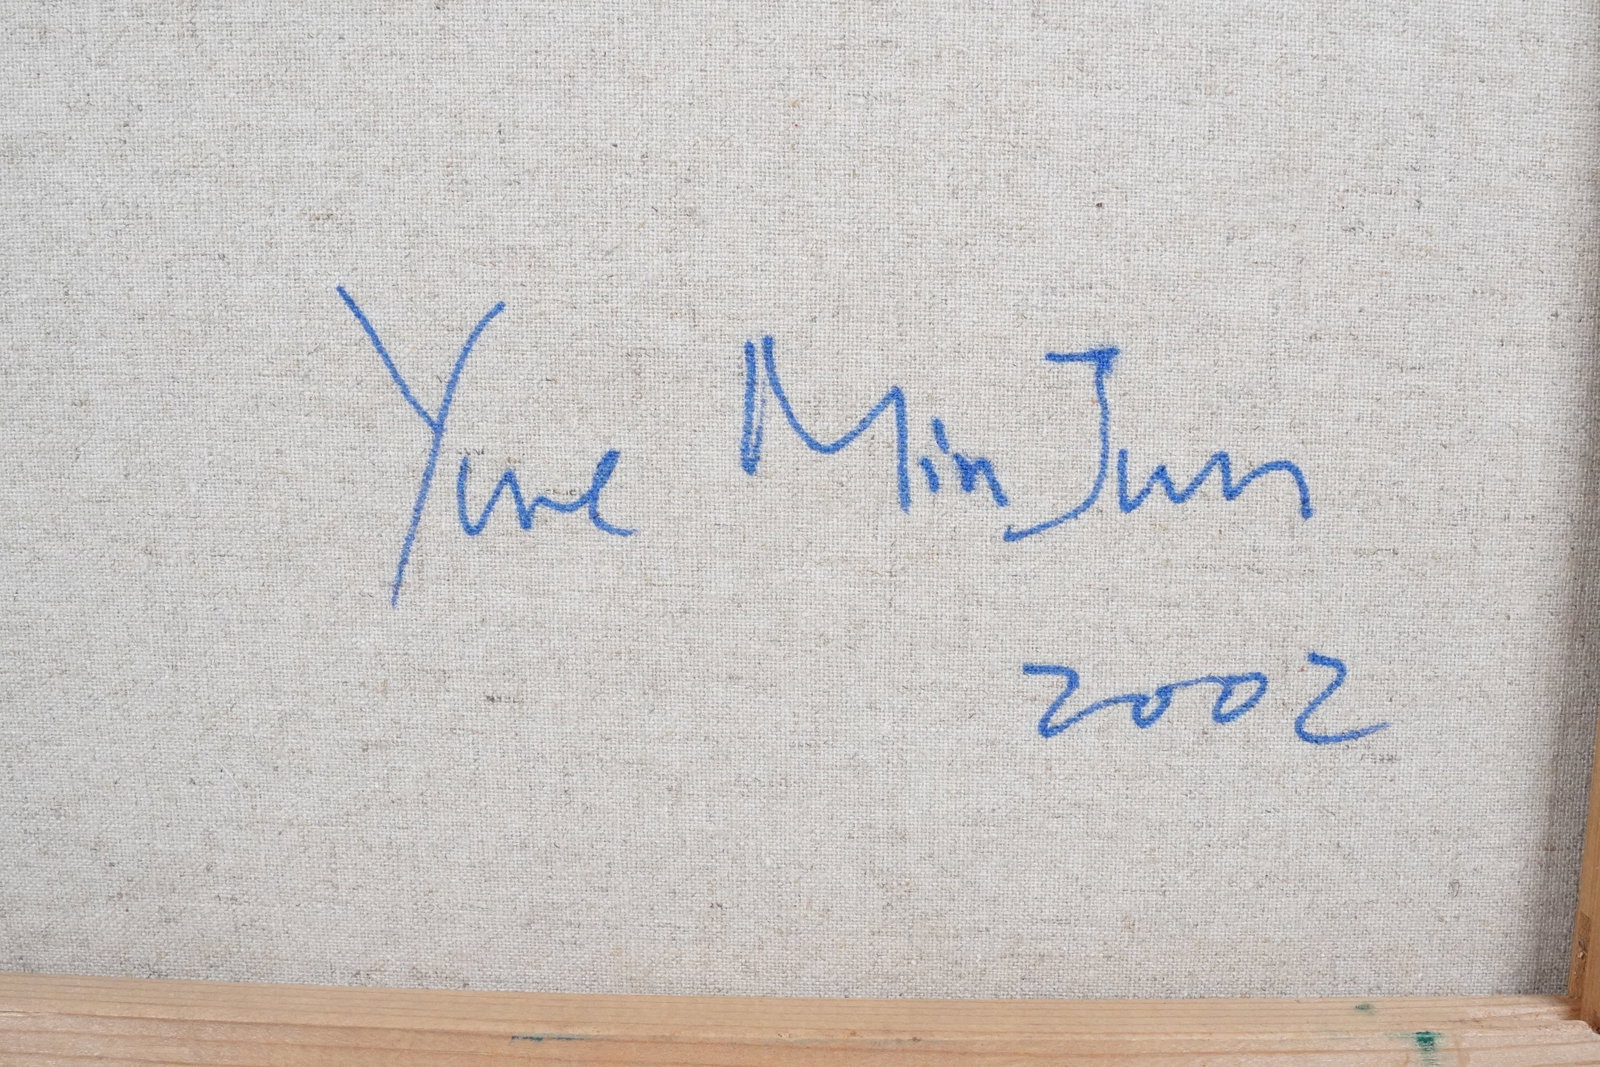 Yue Min Jun
2002